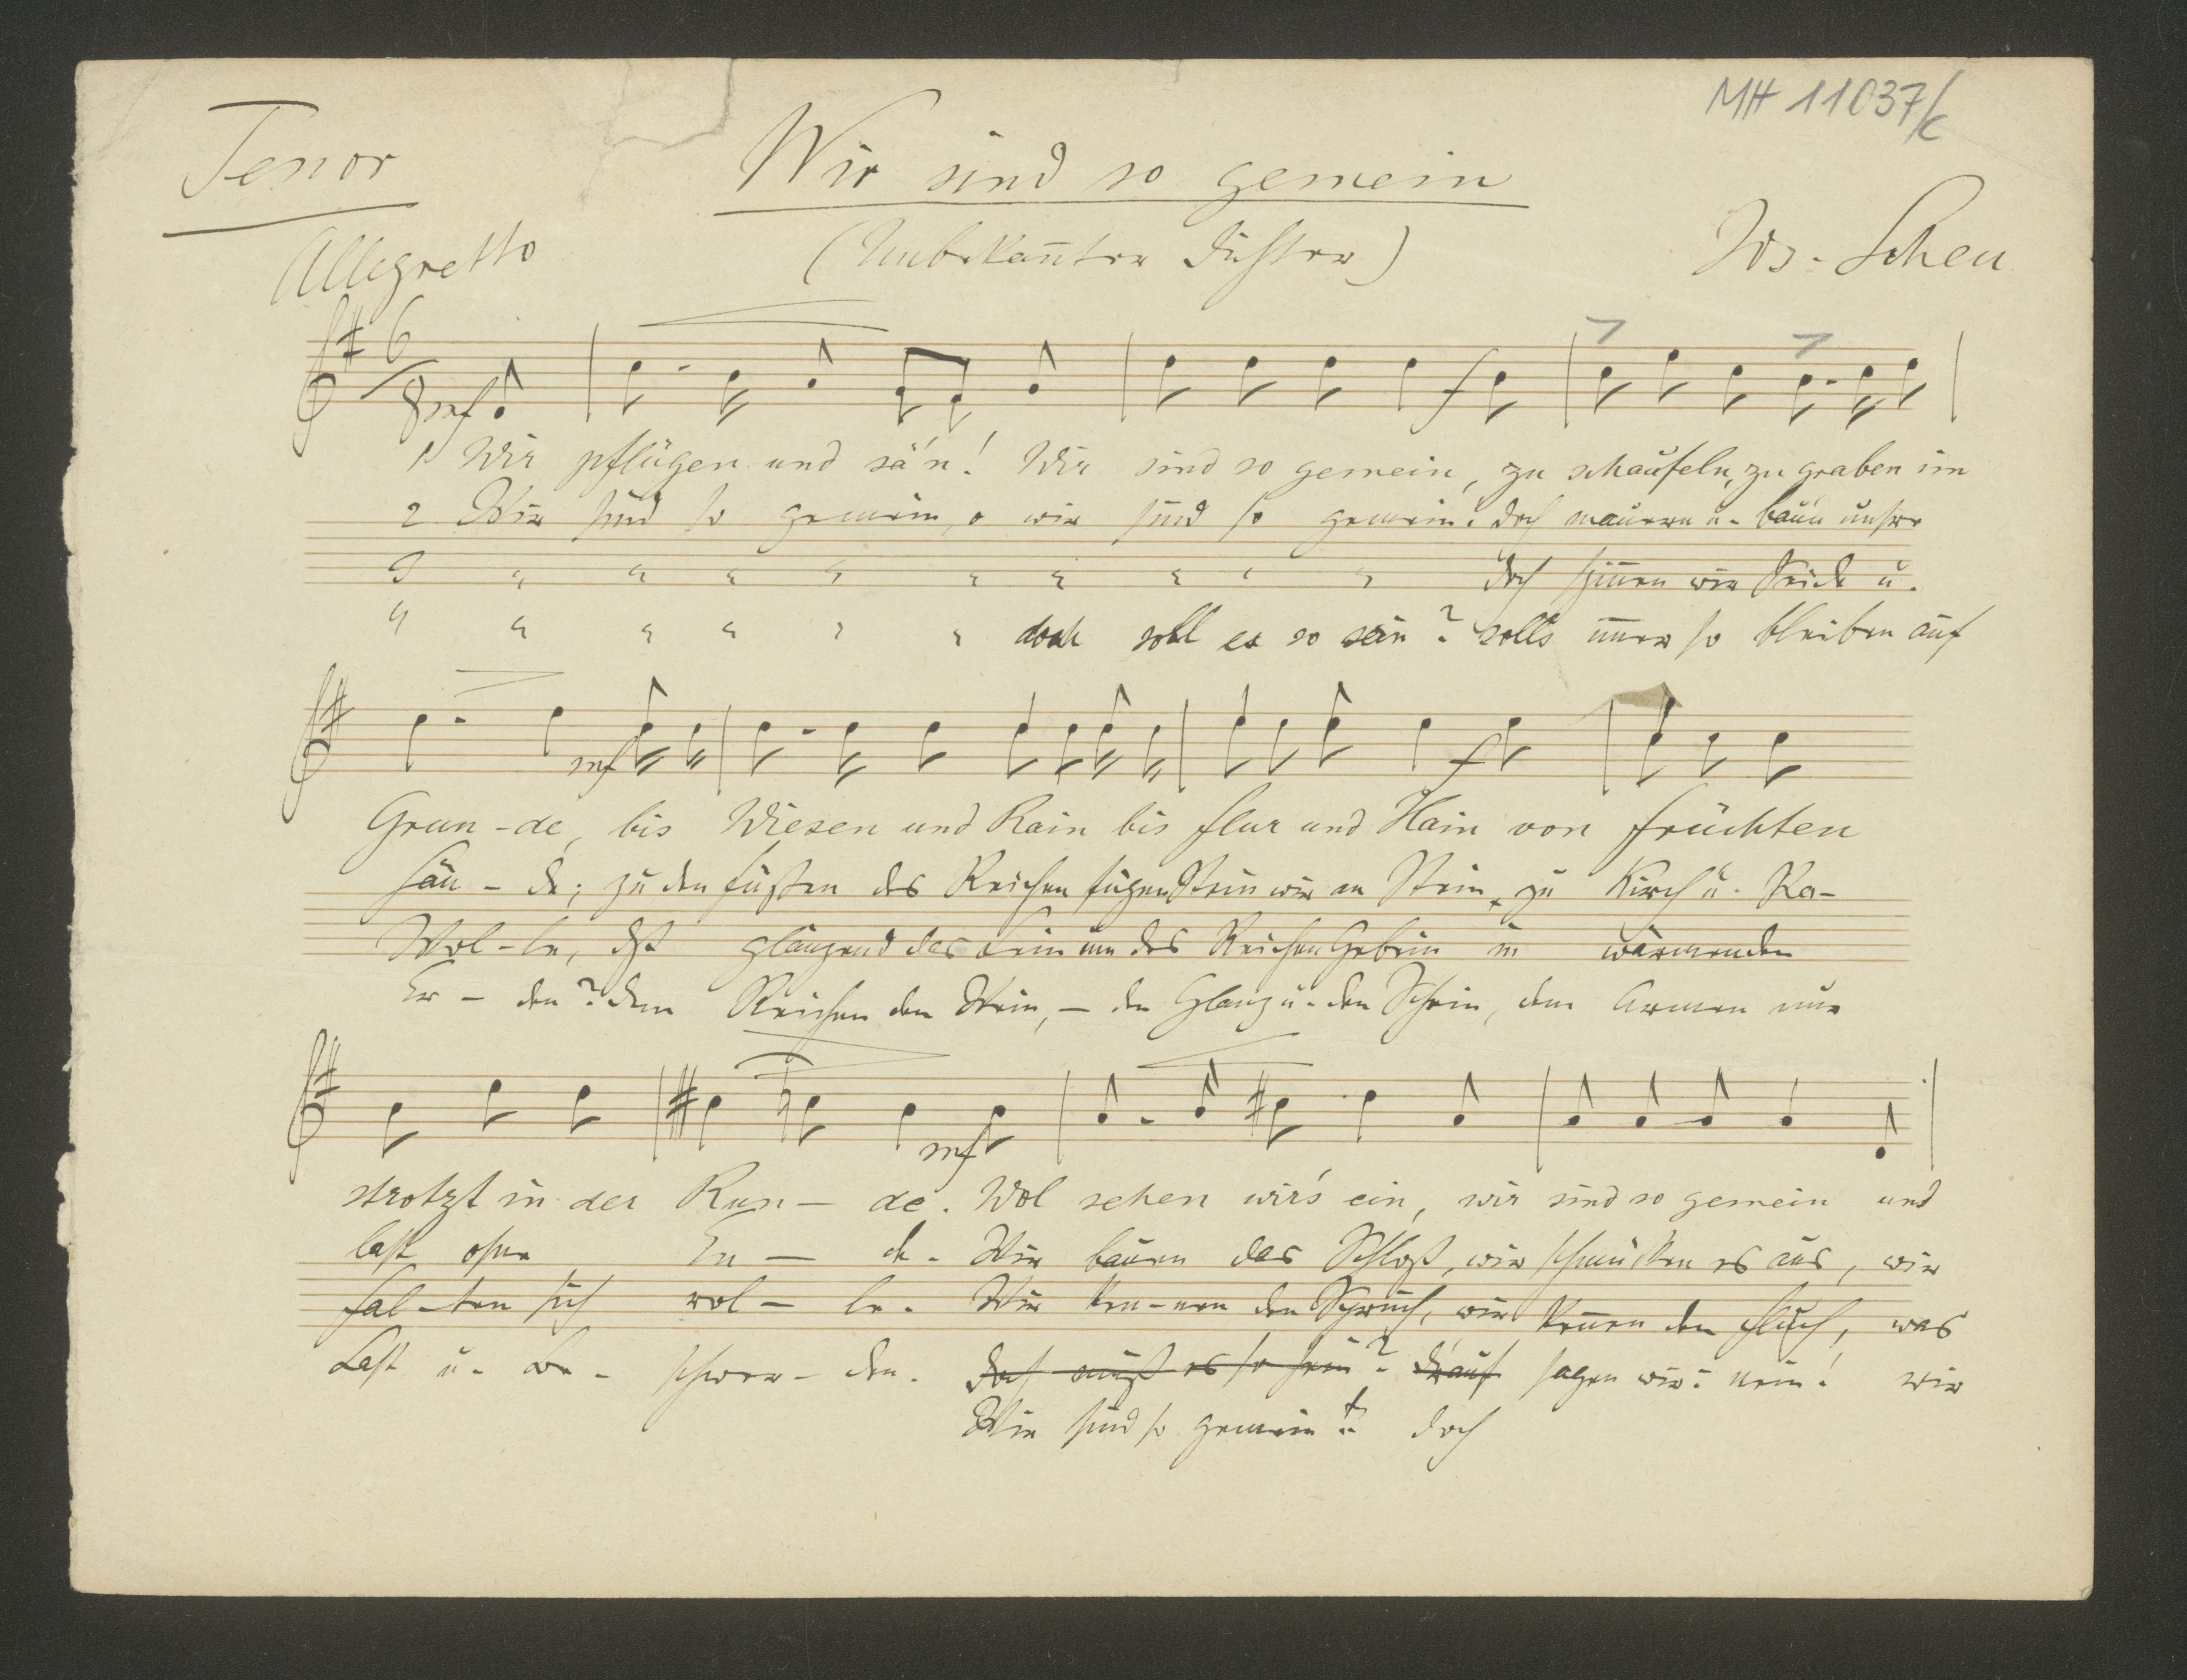 MH 11037/c
Tenor
Wir sind so gemein
Allegretto
(Unbekannter Dichter)
Jos. Scheu
6
8 mf f
1 Wir pflügen und sä'n! Wir sind so gemein, zu schaufeln, zu graben im
2 Wir sind so gemein, o wir sind so gemein! doch mauern u. bau'n unsre
3 " " " " " " " " " doch spinnen wir Seide u.
4 " " " " " doch soll es so sein? solls immer so bleiben auf
mf f
Grun-de, bis Wiesen und Rain bis Flur und Hain von Früchten
Hän-de; zu den Füßen des Reichen fügen Stein wir an Stein, zu Kirch u. Pa-
Wol-le, daß glänzend das Lein um des Reichen Gebein in wärmenden
Er-den? dem Reichen den Wein, - den Glanz u. den Schein, dem Armen nur
mf
strotzt in der Run-de. Wol sehen wir's ein, wir sind so gemein und
last ohne En-de. Wir bauen das Schloß, wir schmücken es aus, wir
Fal-ten sich rol-le. Wir ken-nen den Spruch, wir kennen den Fluch, was
Last u. Be-schwer-den. doch muß es so sein? drauf sagen wir: nein! wir
Wir sind so gemein! doch